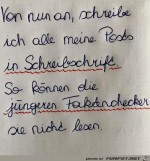 Von nun an, schreibe
ich alle meine Posts
in Schreibschrift.
So können die
jüngeren Faktenchecker
sie nicht lesen.